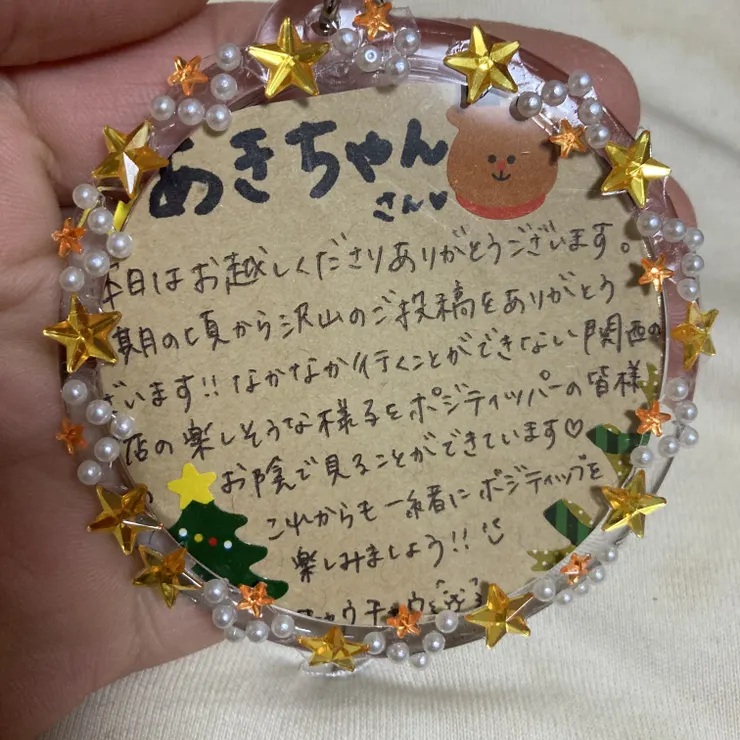 あきちゃん
さん♥
本日はお越しくださりありがとうございます。
期の頃から沢山のご投稿をありがとう
ざいます!! なかなか行くことができない関西の
店の楽しそうな様子をポジティッパーの皆様
お陰で見ることができています♡
これからも一緒にポジティップを
楽しみましょう!!
チャウチャウ